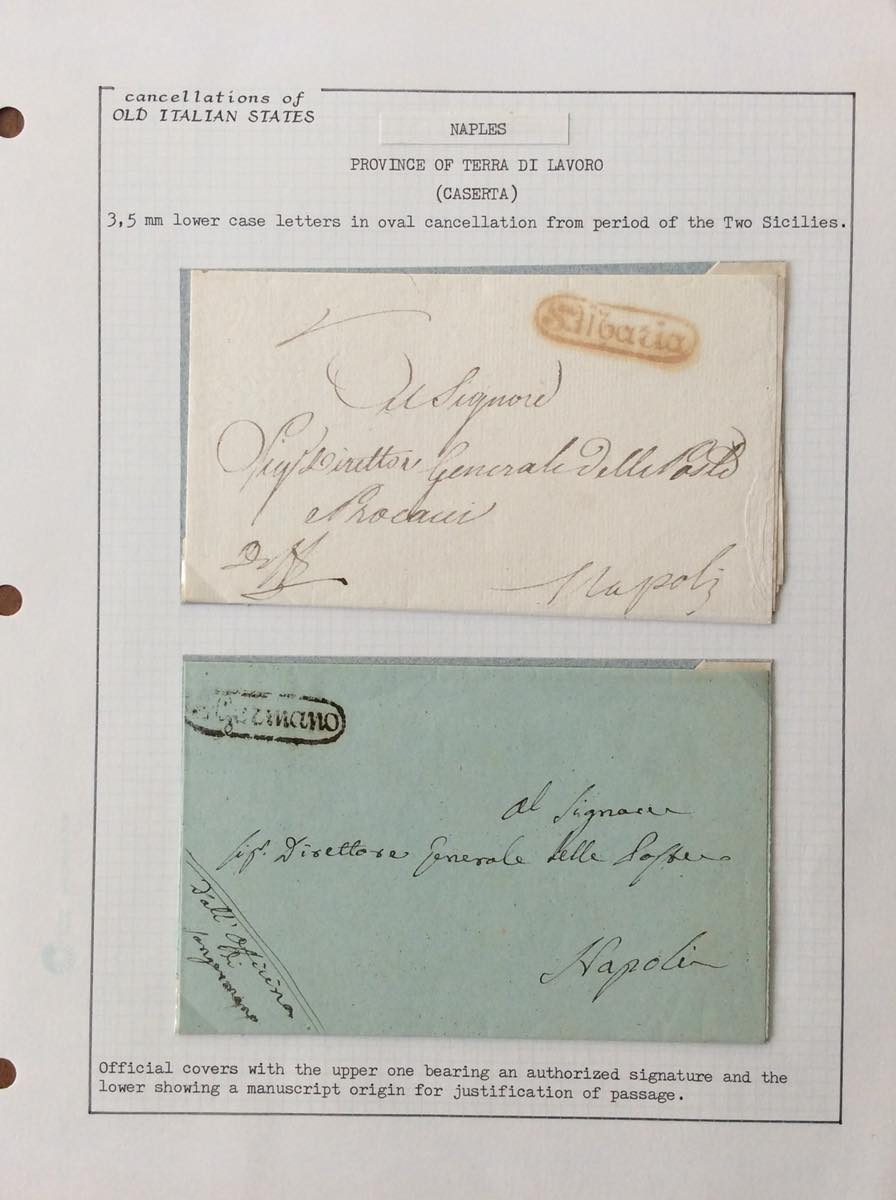 cancellations of
OLD ITALIAN STATES
NAPLES
PROVINCE OF TERRA DI LAVORO
(CASERTA)
3,5 mm lower case letters in oval cancellation from period of the Two Sicilies.
Al Signore
Sigr Direttore Generale delle Poste
e Procacci
Napoli
Germano
Al Signore
Sigr. Direttore Generale delle Poste
Napoli
Dall' Officina
di
Sangermano
Official covers with the upper one bearing an authorized signature and the
lower showing a manuscript origin for justification of passage.